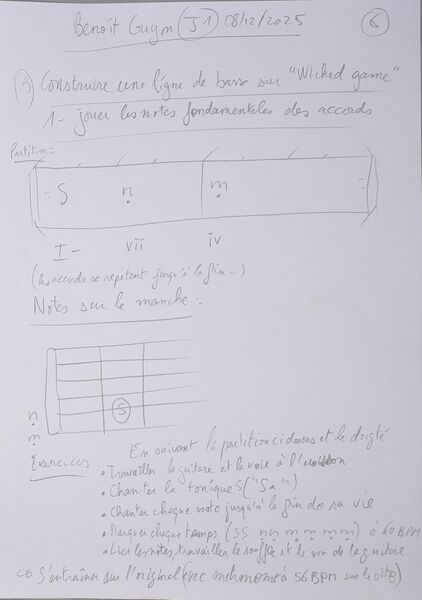 Benoît Guym (J1) 08/12/2025 6
5) Construire une ligne de basse sur "Wicked game"
1- jouer les notes fondamentales des accords
Partition :
S n m
I- vii iv
(les accords se répètent jusqu'à la fin...)
Notes sur le manche :
S
n
m
En suivant la partition ci dessus et le doigté
Exercices
• Travailler la guitare et la voix à l'unisson
• Chanter la tonique S ("Sa")
• Chanter chaque note jusqu'à la fin de sa vie
• Marquer chaque temps (SS nn m m m m) à 60 BPM
• Lier les notes, travailler le souffle et le son de la guitare
S'entraîner sur l'original (avec métronome à 56 BPM sur le site)